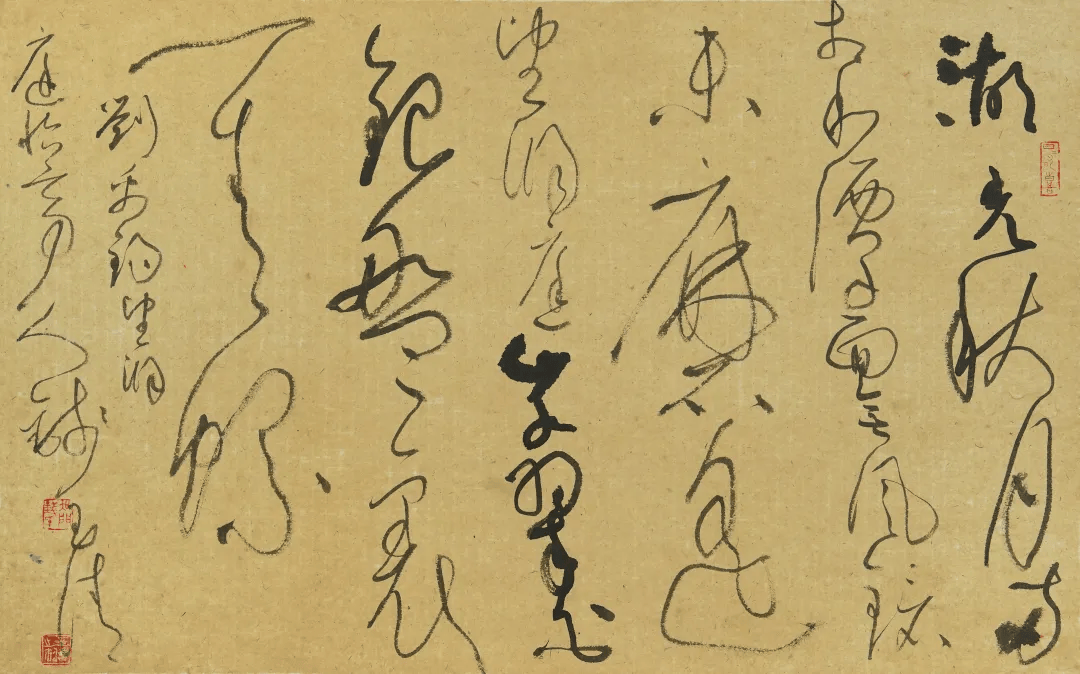 湖光秋月兩
相和潭面無風鏡
未磨遥
望洞庭山翠
銀盤裏
一青螺
劉禹錫望洞
庭